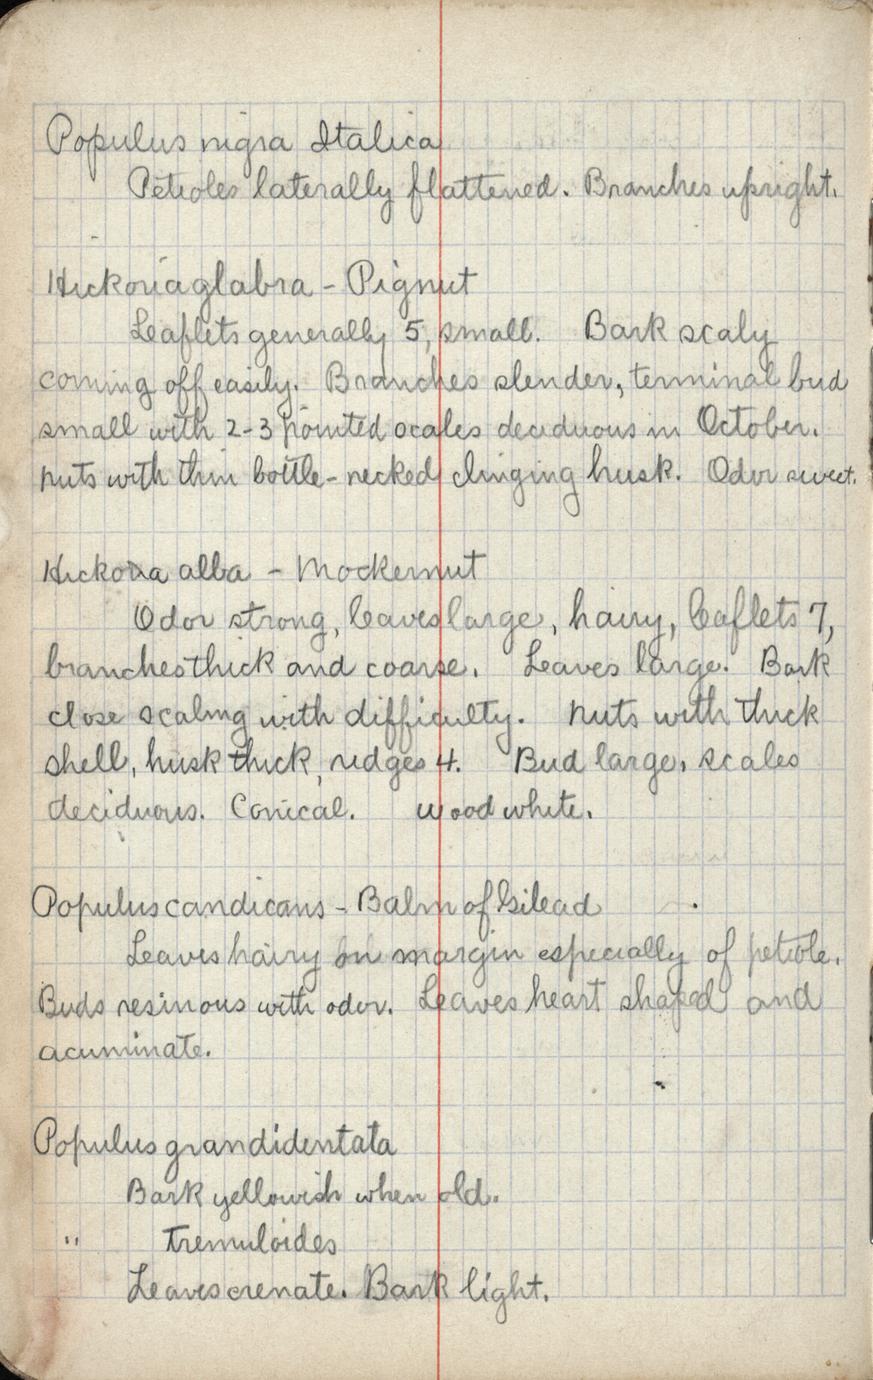 Populus nigra Italica
Petioles laterally flattened. Branches upright.
Hickoria glabra - Pignut
Leaflets generally 5, small. Bark scaly
coming off easily. Branches slender, terminal bud
small with 2-3 pointed scales deciduous in October.
Nuts with thin bottle-necked clinging husk. Odor sweet.
Hickoria alba - Mockernut
Odor strong, leaves large, hairy, leaflets 7,
branches thick and coarse. Leaves large. Bark
close scaling with difficulty. Nuts with thick
shell, husk thick, ridges 4. Bud large, scales
deciduous. Conical. Wood white.
Populus candicans - Balm of Gilead
Leaves hairy on margin especially of petiole.
Buds resinous with odor. Leaves heart shaped and
acuminate.
Populus grandidentata
Bark yellowish when old.
" tremuloides
Leaves crenate. Bark light.